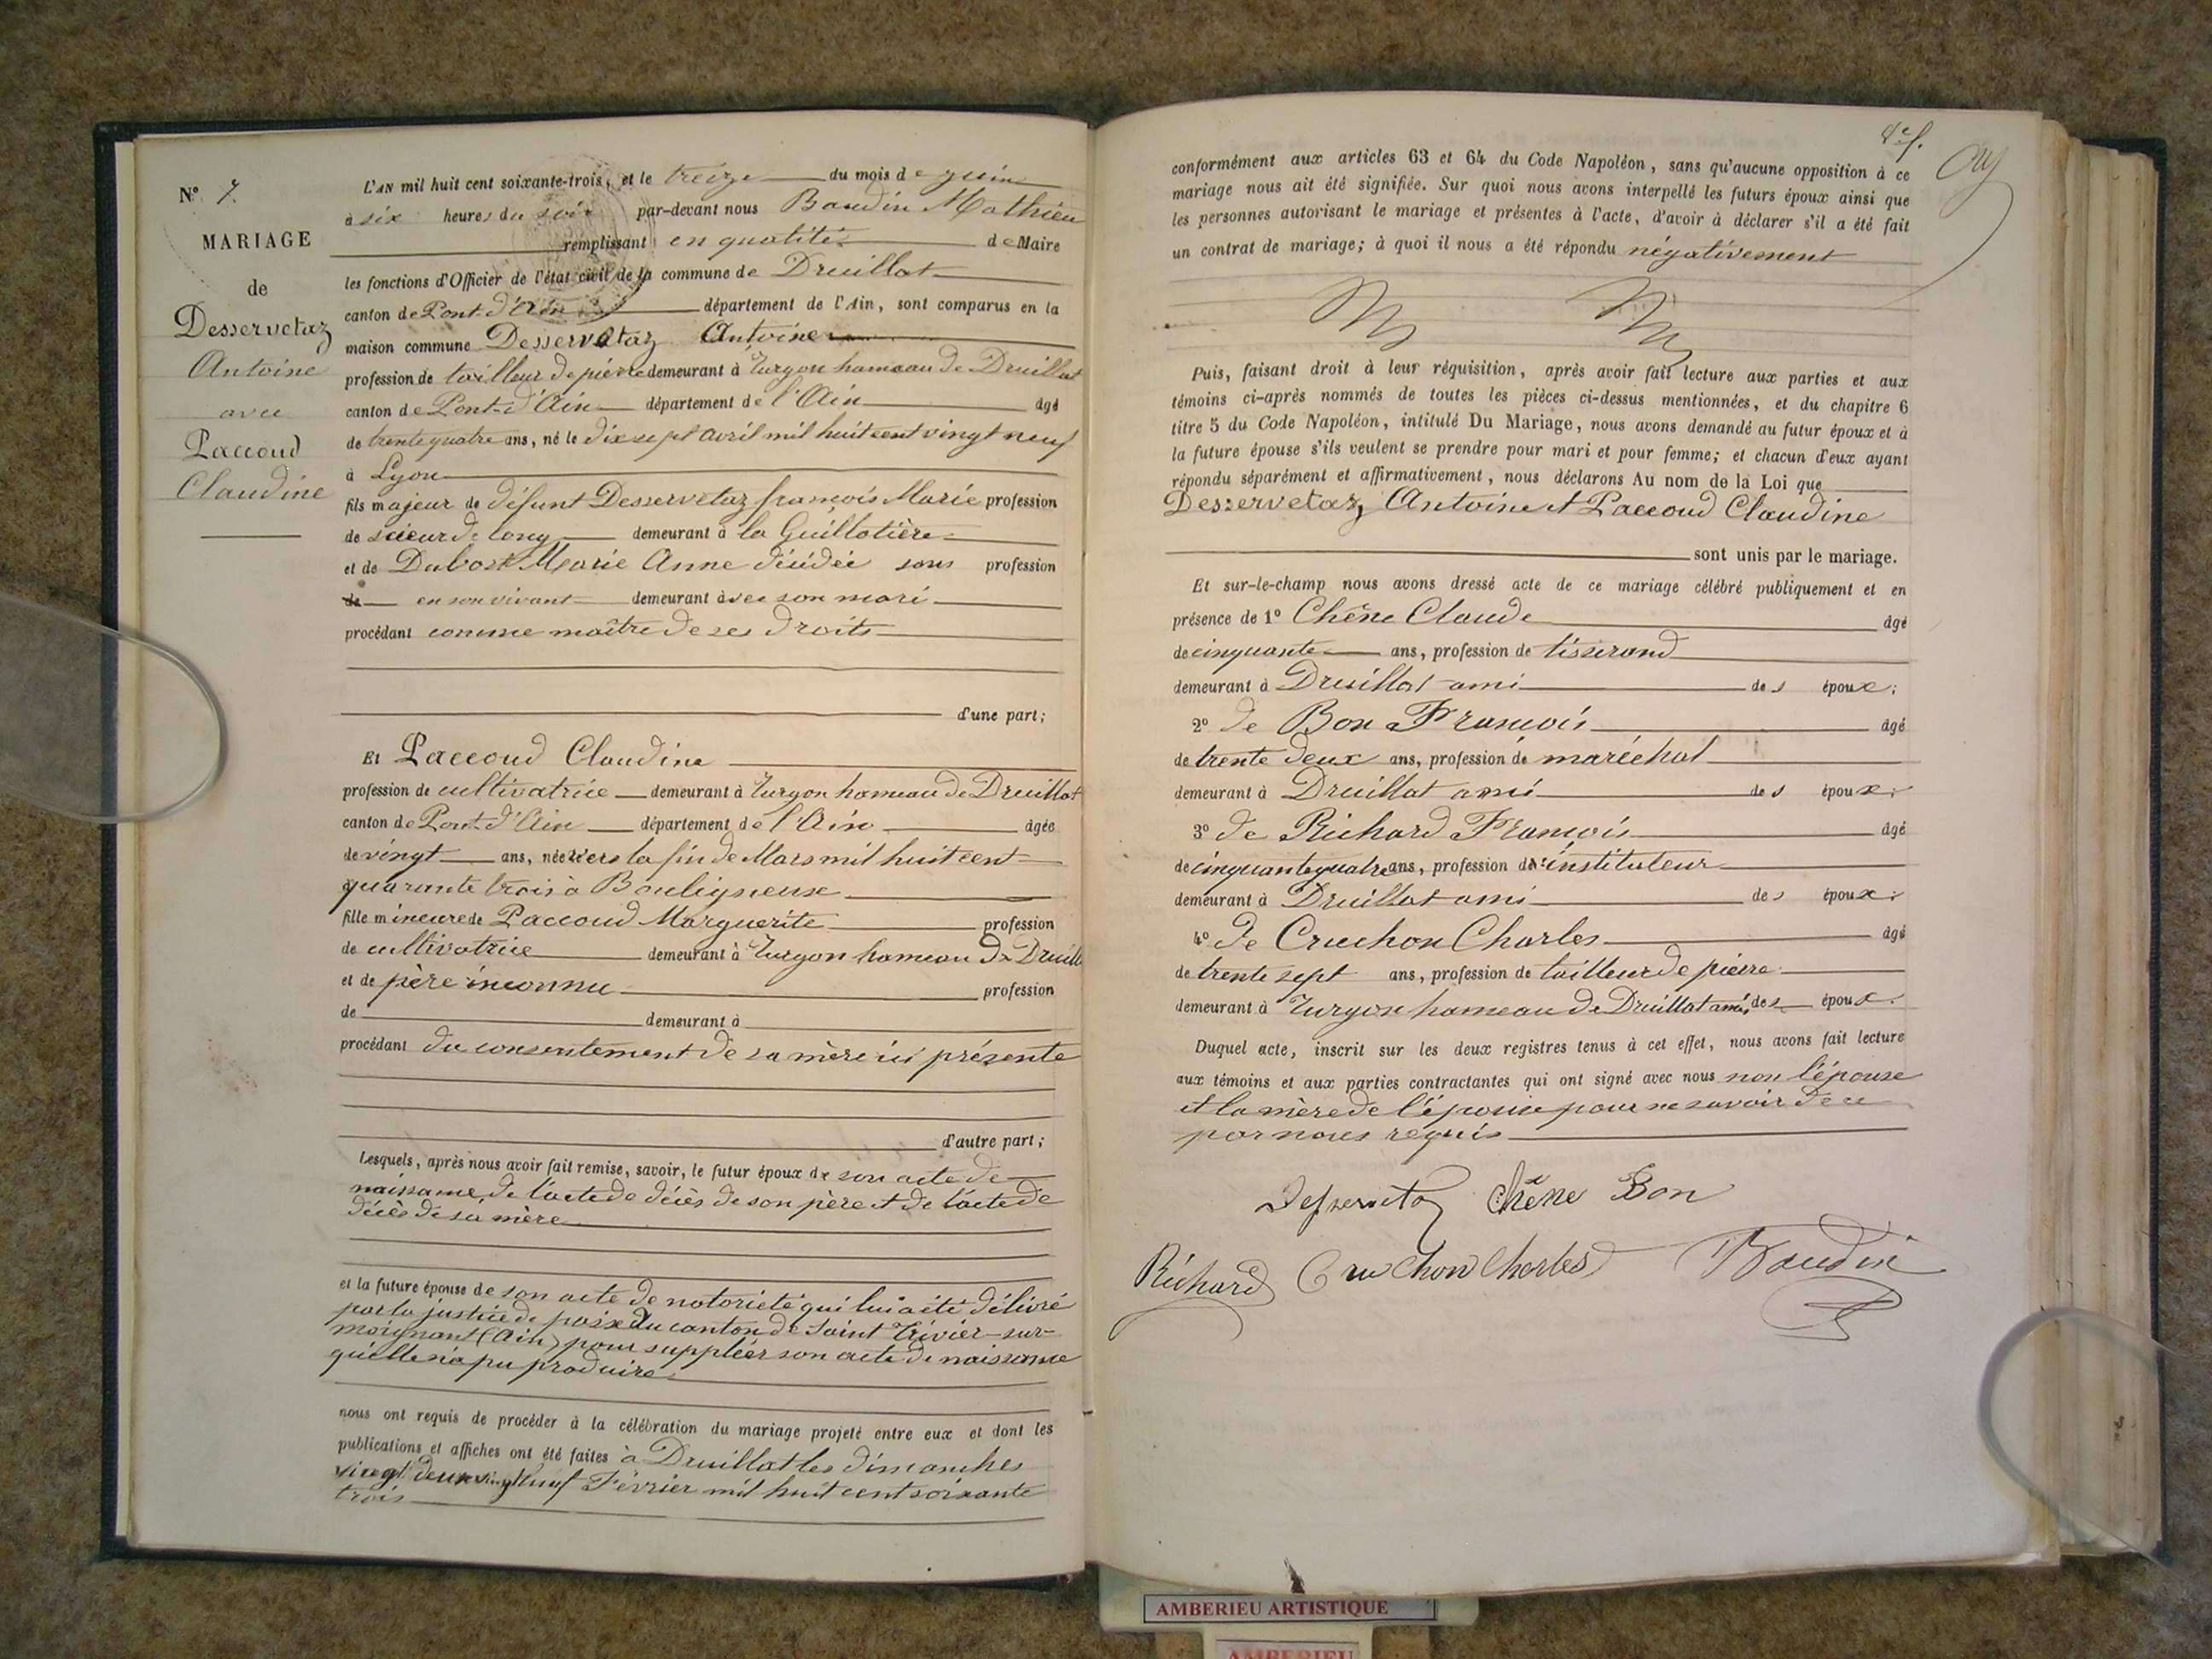 N° 7.
MARIAGE
de
Desservetaz
Antoine
avec
Paccoud
Claudine
L'AN mil huit cent soixante-trois, et le treize du mois de juin
à six heures du soir par-devant nous Baudin Mathieu
remplissant en qualité de Maire
les fonctions d'Officier de l'état civil de la commune de Druillat
canton de Pont-d'Ain département de l'Ain, sont comparus en la
maison commune Desservetaz Antoine
profession de tailleur de pierre demeurant à Turgon hameau de Druillat
canton de Pont-d'Ain département de l'Ain âgé
de trente quatre ans, né le dix sept avril mil huit cent vingt neuf
à Lyon
fils majeur de défunt Desservetaz françois Marie profession
de scieur de long demeurant à la Guillotière
et de Dubost Marie Anne décédée sans profession
de en son vivant demeurant avec son mari
procédant comme maître de ses droits
d'une part;
Et Paccoud Claudine
profession de cultivatrice demeurant à Turgon hameau de Druillat
canton de Pont-d'Ain département de l'Ain âgée
de vingt ans, née vers la fin de Mars mil huit cent
quarante trois à Bouligneux
fille mineure de Paccoud Marguerite profession
de cultivatrice demeurant à Turgon hameau de Druill
et de père inconnu profession
de demeurant à
procédant du consentement de sa mère ici présente
d'autre part;
Lesquels, après nous avoir fait remise, savoir, le futur époux de son acte de
naissance, de l'acte de décès de son père et de l'acte de
décès de sa mère
et la future épouse de son acte de notoriété qui lui a été délivré
par la justice de paix du canton de Saint Trivier-sur-
moignant (Ain) pour suppléer son acte de naissance
qu'elle n'a pu produire
nous ont requis de procéder à la célébration du mariage projeté entre eux et dont les
publications et affiches ont été faites à Druillat les dimanches
vingt deux vingt neuf Février mil huit cent soixante
trois
conformément aux articles 63 et 64 du Code Napoléon, sans qu'aucune opposition à ce
mariage nous ait été signifiée. Sur quoi nous avons interpellé les futurs époux ainsi que
les personnes autorisant le mariage et présentes à l'acte, d'avoir à déclarer s'il a été fait
un contrat de mariage; à quoi il nous a été répondu négativement
Puis, faisant droit à leur réquisition, après avoir fait lecture aux parties et aux
témoins ci-après nommés de toutes les pièces ci-dessus mentionnées, et du chapitre 6
titre 5 du Code Napoléon, intitulé Du Mariage, nous avons demandé au futur époux et à
la future épouse s'ils veulent se prendre pour mari et pour femme; et chacun d'eux ayant
répondu séparément et affirmativement, nous déclarons Au nom de la Loi que
Desservetaz, Antoine et Paccoud Claudine
sont unis par le mariage.
Et sur-le-champ nous avons dressé acte de ce mariage célébré publiquement et en
présence de 1° Chêne Claude âgé
de cinquante ans, profession de tisserand
demeurant à Druillat ami des époux;
2° de Bon François âgé
de trente deux ans, profession de maréchal
demeurant à Druillat ami des époux;
3° de Richard François âgé
de cinquante quatre ans, profession d'instituteur
demeurant à Druillat ami des époux;
4° de Cruchon Charles âgé
de trente sept ans, profession de tailleur de pierre
demeurant à Turgon hameau de Druillat ami des époux.
Duquel acte, inscrit sur les deux registres tenus à cet effet, nous avons fait lecture
aux témoins et aux parties contractantes qui ont signé avec nous non l'épouse
et la mère de l'épouse pour ne savoir de ce
par nous requis
Desservetaz Chêne Bon
Richard Cruchon Charles Baudin
AMBERIEU ARTISTIQUE
AMBERIEU